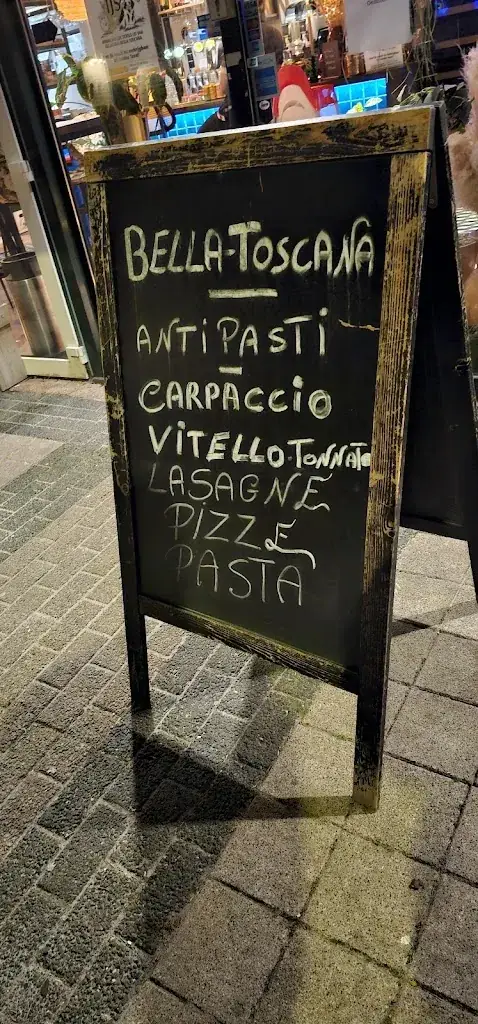 BELLA-TOSCANA
ANTIPASTI
CARPACCIO
VITELLO-TONNATO
LASAGNE
PIZZE
PASTA